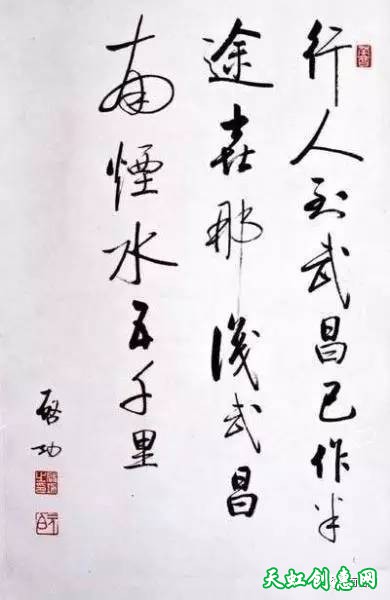 行人到武昌已作半
途喜那識武昌
南煙水五千里
啓功
天虹创意网